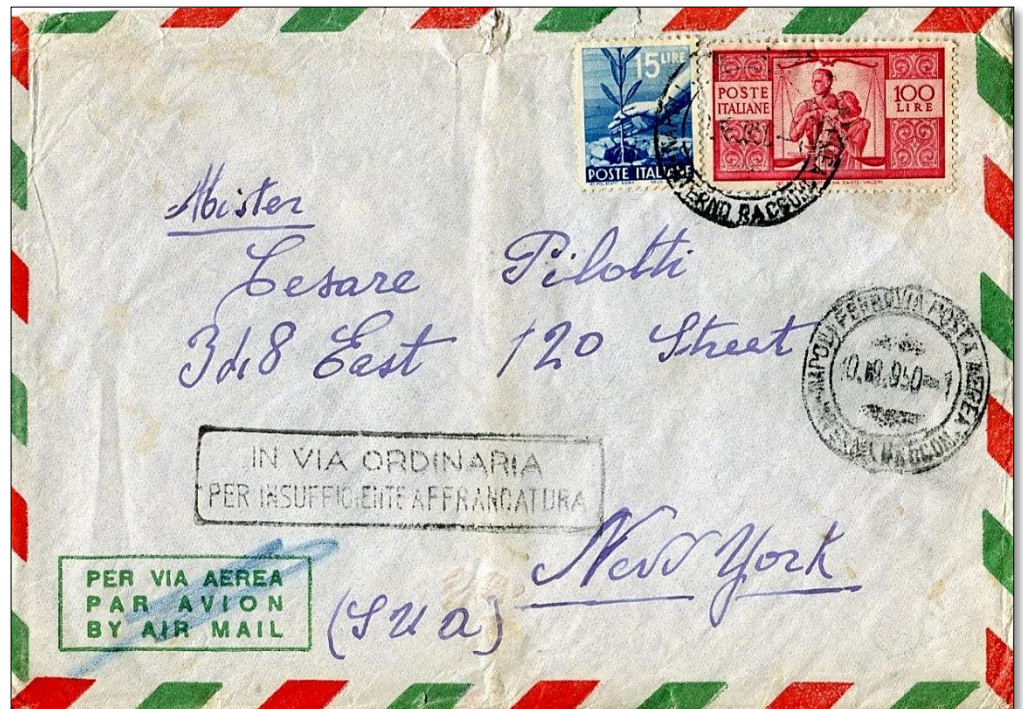 15 LIRE
POSTE ITALIANE
POSTE
ITALIANE
100
LIRE
Mister
Cesare Pilotti
348 East 120 Street
NAPOLI FERROVIA POSTA AEREA
IN VIA ORDINARIA
PER INSUFFICIENTE AFFRANCATURA
New York
PER VIA AEREA
PAR AVION
BY AIR MAIL
(S U A)